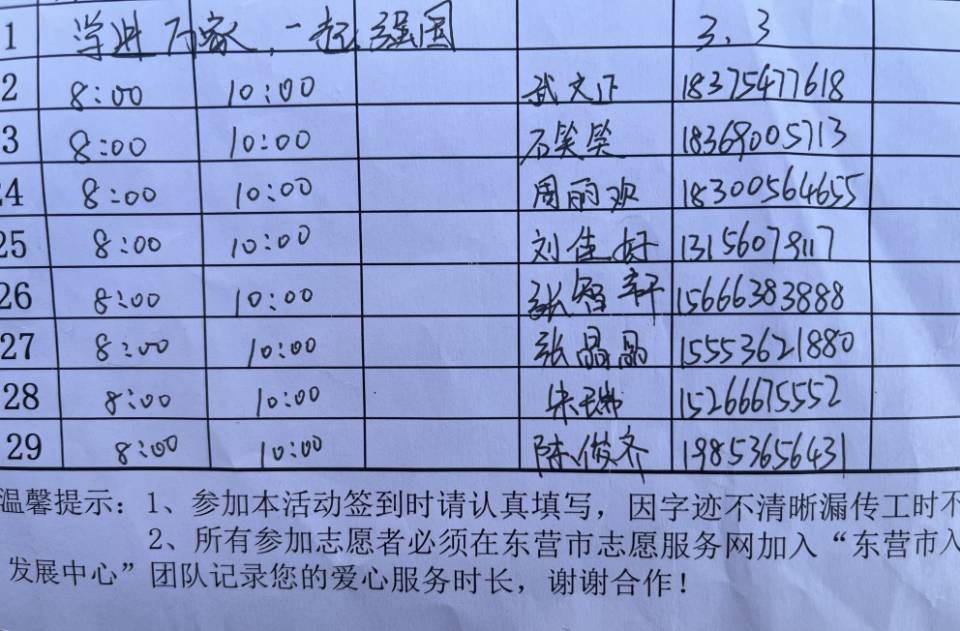 1 学进万家,一起强国 3.3
2 8:00 10:00 武文正 18375477618
3 8:00 10:00 石笑笑 18369005713
24 8:00 10:00 周丽欢 18300564655
25 8:00 10:00 刘佳好 13156079117
26 8:00 10:00 张智轩 15666383888
27 8:00 10:00 张晶晶 15553621880
28 8:00 10:00 朱瑞 15266675552
29 8:00 10:00 陈俊齐 19853656431
温馨提示:1、参加本活动签到时请认真填写,因字迹不清晰漏传工时不
2、所有参加志愿者必须在东营市志愿服务网加入“东营市入
发展中心”团队记录您的爱心服务时长,谢谢合作!